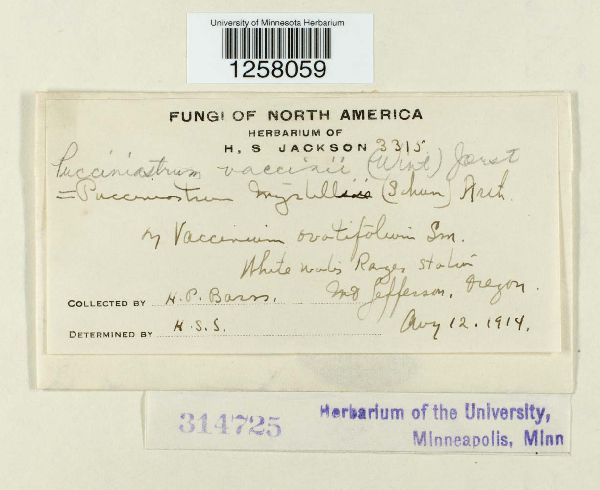 University of Minnesota Herbarium
1258059
FUNGI OF NORTH AMERICA
HERBARIUM OF
H. S JACKSON 3315
Pucciniastrum vaccinii (Wint) Jorst
= Pucciniastrum (Schum) Arth.
Vaccinium ovalifolium Sm.
White Ranger Station
Mt Jefferson, Oregon.
COLLECTED BY H. P. Barss.
DETERMINED BY H.S.S. Aug 12. 1914.
314725
Herbarium of the University,
Minneapolis, Minn